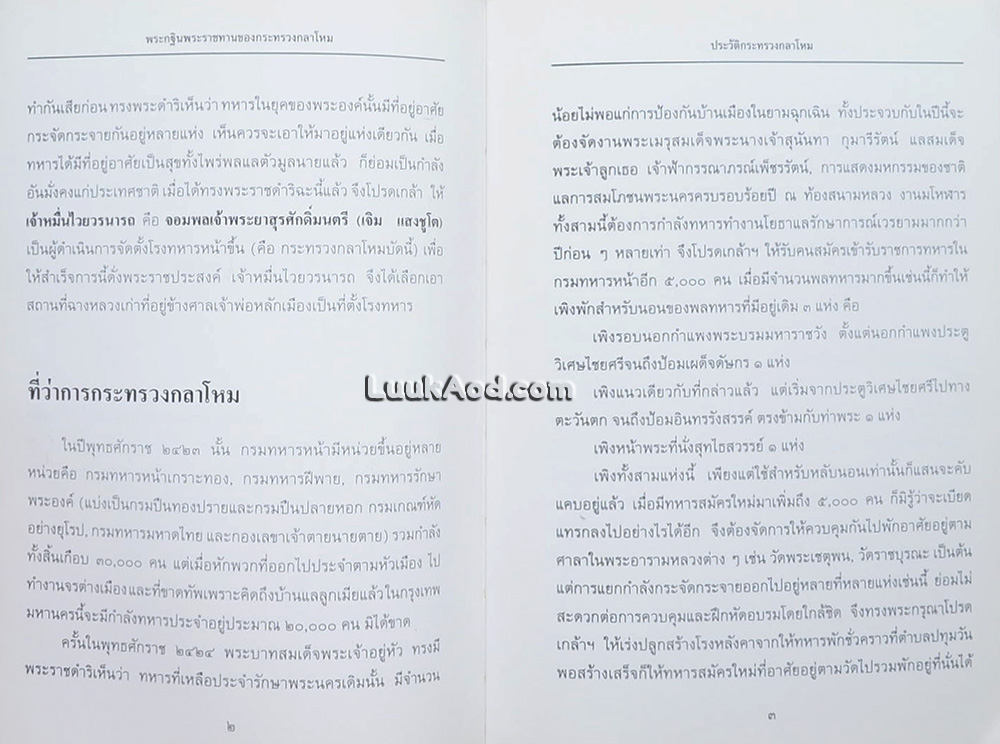 พระกฐินพระราชทานของกระทรวงกลาโหม
ทำกันเสียก่อน ทรงพระดำริเห็นว่า ทหารในยุคของพระองค์นั้นมีที่อยู่อาศัย
กระจัดกระจายกันอยู่หลายแห่ง เห็นควรจะเอาให้มาอยู่แห่งเดียวกัน เมื่อ
ทหารได้มีที่อยู่อาศัยเป็นสุขทั้งไพร่พลแลตัวมูลนายแล้ว ก็ย่อมเป็นกำลัง
อันมั่งคงแก่ประเทศชาติ เมื่อได้ทรงพระราชดำริฉะนี้แล้ว จึงโปรดเกล้า ให้
เจ้าหมื่นไวยวรนารถ คือ จอมพลเจ้าพระยาสุรศักดิ์มนตรี (เจิม แสงชูโต)
เป็นผู้ดำเนินการจัดตั้งโรงทหารหน้าขึ้น (คือ กระทรวงกลาโหมบัดนี้) เพื่อ
ให้สำเร็จการนี้ดั่งพระราชประสงค์ เจ้าหมื่นไวยวรนารถ จึงได้เลือกเอา
สถานที่ฉางหลวงเก่าที่อยู่ข้างศาลเจ้าพ่อหลักเมืองเป็นที่ตั้งโรงทหาร
ที่ว่าการกระทรวงกลาโหม
ในปีพุทธศักราช ๒๔๒๓ นั้น กรมทหารหน้ามีหน่วยขึ้นอยู่หลาย
หน่วยคือ กรมทหารหน้าเกราะทอง, กรมทหารฝีพาย, กรมทหารรักษา
พระองค์ (แบ่งเป็นกรมปืนทองปรายและกรมปืนปลายหอก กรมเกณฑ์หัด
อย่างยุโรป, กรมทหารมหาดไทย และกองเลขาเจ้าตายนายตาย) รวมกำลัง
ทั้งสิ้นเกือบ ๓๐,๐๐๐ คน แต่เมื่อหักพวกที่ออกไปประจำตามหัวเมือง ไป
ทำงานจรต่างเมืองและที่ขาดทัพเพราะคิดถึงบ้านแลลูกเมียแล้วในกรุงเทพ
มหานครนี้จะมีกำลังทหารประจำอยู่ประมาณ ๒๐,๐๐๐ คน มิได้ขาด
ครั้นในพุทธศักราช ๒๔๒๔ พระบาทสมเด็จพระเจ้าอยู่หัว ทรงมี
พระราชดำริเห็นว่า ทหารที่เหลือประจำรักษาพระนครเดิมนั้น มีจำนวน
๒
ประวัติกระทรวงกลาโหม
น้อยไม่พอแก่การป้องกันบ้านเมืองในยามฉุกเฉิน ทั้งประจวบกับในปีนี้จะ
ต้องจัดงานพระเมรุสมเด็จพระนางเจ้าสุนันทา กุมารีรัตน์ แลสมเด็จ
พระเจ้าลูกเธอ เจ้าฟ้ากรรณาภรณ์เพ็ชรรัตน์, การแสดงมหกรรมของชาติ
แลการสมโภชพระนครครบรอบร้อยปี ณ ท้องสนามหลวง งานมโหฬาร
ทั้งสามนี้ต้องการกำลังทหารทำงานโยธาแลรักษาการณ์เวรยามมากกว่า
ปีก่อน ๆ หลายเท่า จึงโปรดเกล้าฯ ให้รับคนสมัครเข้ารับราชการทหารใน
กรมทหารหน้าอีก ๕,๐๐๐ คน เมื่อมีจำนวนพลทหารมากขึ้นเช่นนี้ก็ทำให้
เพิงพักสำหรับนอนของพลทหารที่มีอยู่เดิม ๓ แห่ง คือ
เพิงรอบนอกกำแพงพระบรมมหาราชวัง ตั้งแต่นอกกำแพงประตู
วิเศษไชยศรีจนถึงป้อมเผด็จดัษกร ๑ แห่ง
เพิงแนวเดียวกับที่กล่าวแล้ว แต่เริ่มจากประตูวิเศษไชยศรีไปทาง
ตะวันตก จนถึงป้อมอินทรรังสรรค์ ตรงข้ามกับท่าพระ ๑ แห่ง
เพิงหน้าพระที่นั่งสุทไธสวรรย์ ๑ แห่ง
เพิงทั้งสามแห่งนี้ เพียงแต่ใช้สำหรับหลับนอนเท่านั้นก็แสนจะคับ
แคบอยู่แล้ว เมื่อมีทหารสมัครใหม่มาเพิ่มถึง ๕,๐๐๐ คน ก็มิรู้ว่าจะเบียด
แทรกลงไปอย่างไรได้อีก จึงต้องจัดการให้ควบคุมกันไปพักอาศัยอยู่ตาม
ศาลาในพระอารามหลวงต่าง ๆ เช่น วัดพระเชตุพน, วัดราชบุรณะ เป็นต้น
แต่การแยกกำลังกระจัดกระจายออกไปอยู่หลายที่หลายแห่งเช่นนี้ ย่อมไม่
สะดวกต่อการควบคุมและฝึกหัดอบรมโดยใกล้ชิด จึงทรงพระกรุณาโปรด
เกล้าฯ ให้เร่งปลูกสร้างโรงหลังคาจากให้ทหารพักชั่วคราวที่ตำบลปทุมวัน
พอสร้างเสร็จก็ให้ทหารสมัครใหม่ที่อาศัยอยู่ตามวัดไปรวมพักอยู่ที่นั่นได้
๓
LuukAod.com